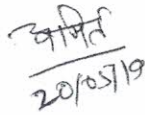 अमित
20/05/19